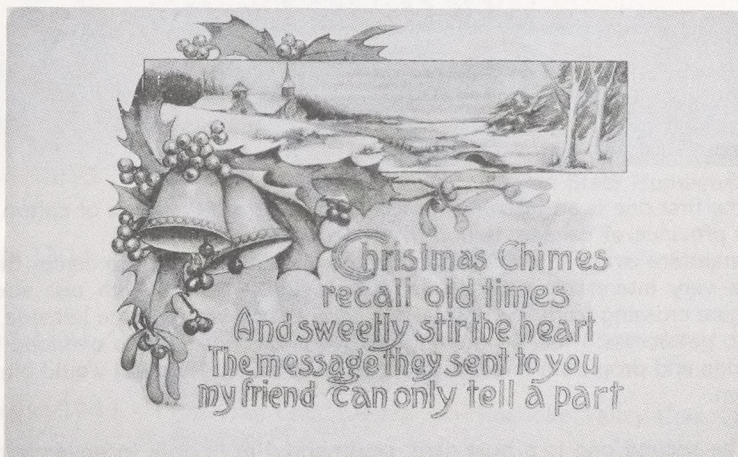 Christmas Chimes
recall old times
And sweetly stir the heart
The message they sent to you
my friend can only tell a part